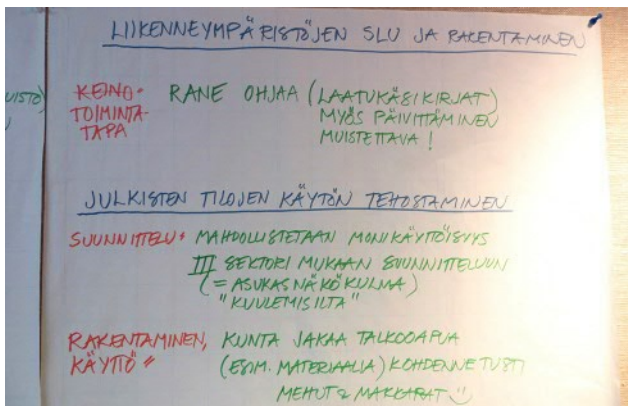 LIIKENNEYMPÄRISTÖJEN SLU JA RAKENTAMINEN
UISTO)
KEINO- RANE OHJAA (LAATUKÄSIKIRJAT)
TOIMINTA- MYÖS PÄIVITTÄMINEN
TAPA MUISTETTAVA !
JULKISTEN TILOJEN KÄYTÖN TEHOSTAMINEN
SUUNNITTELU + MAHDOLLISTETAAN MONIKÄYTTÖISYYS
III SEKTORI MUKAAN SUUNNITTELUUN
(= ASUKASNÄKÖKULMAA)
"KUULEMISILTA"
RAKENTAMINEN, KUNTA JAKAA TALKOOAPUA
KÄYTTÖ " (ESIM. MATERIAALIA) KOHDENNETUSTI
MEHUT & MAKKARAT